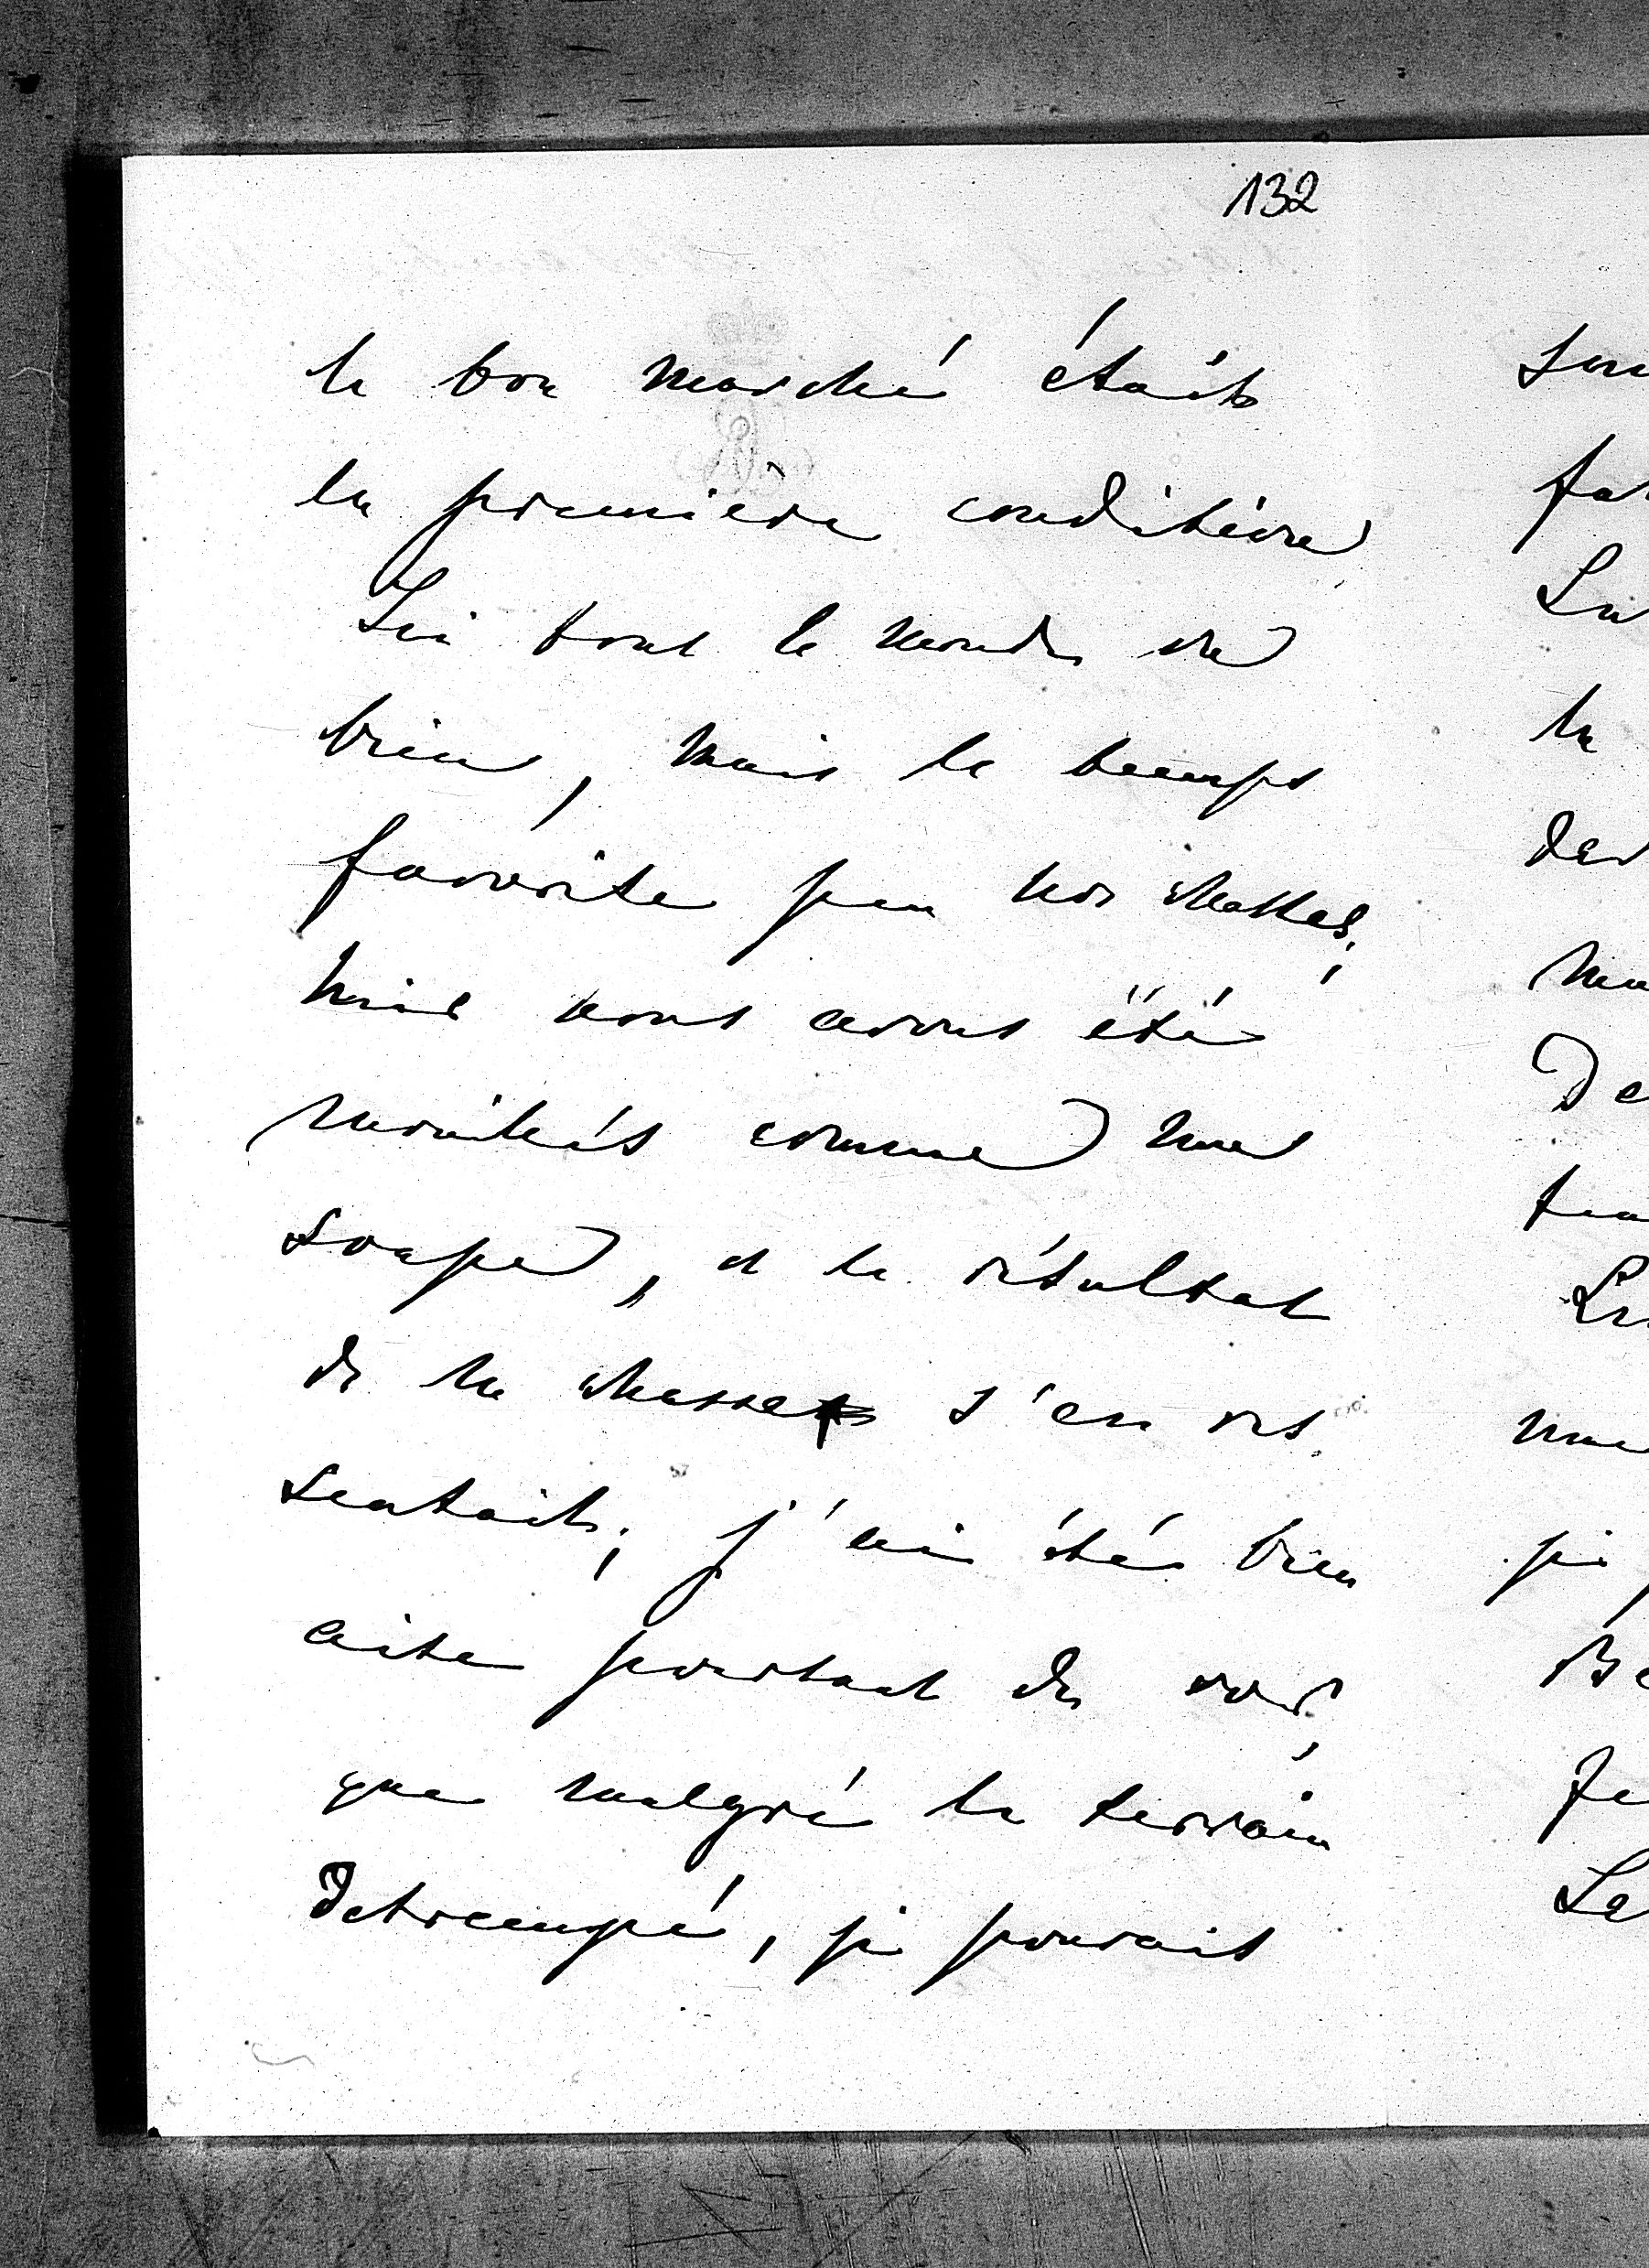 132
le bon marché était
la première condition
Ici tout le monde va
bien, mais le temps
favorise peu nos chasses;
hier nous avons été
mouillés comme une
soupe, et le résultat
de la chasse s'en res
sentait; j'ai été bien
aise pourtant de voir,
que malgré le terrain
detrempé, je pouvais